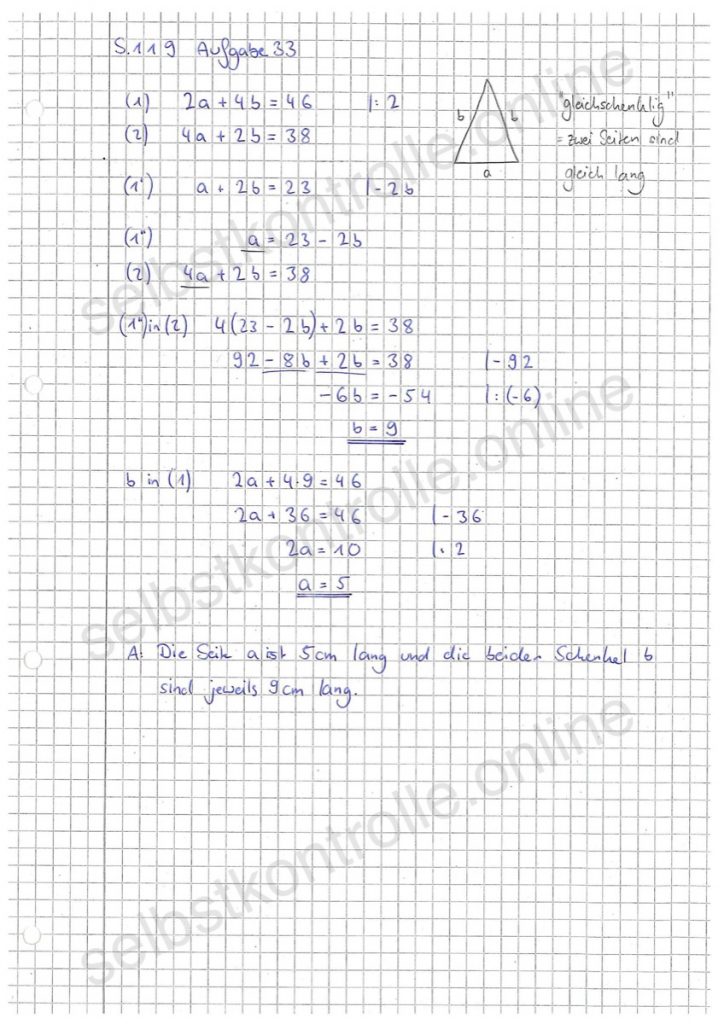 S.119 Aufgabe 33
(1) 2a + 4b = 46 |: 2
(2) 4a + 2b = 38
b b
a
"gleichschenklig"
= zwei Seiten sind
gleich lang
(1') a + 2b = 23 |- 2b
(1") a = 23 - 2b
(2) 4a + 2b = 38
(1") in (2) 4(23 - 2b) + 2b = 38
92 - 8b + 2b = 38 |- 92
-6b = -54 |: (-6)
b = 9
b in (1) 2a + 4·9 = 46
2a + 36 = 46 |- 36
2a = 10 |: 2
a = 5
A: Die Seite a ist 5cm lang und die beiden Schenkel b
sind jeweils 9cm lang.
selbstkontrolle.online
selbstkontrolle.online
selbstkontrolle.online